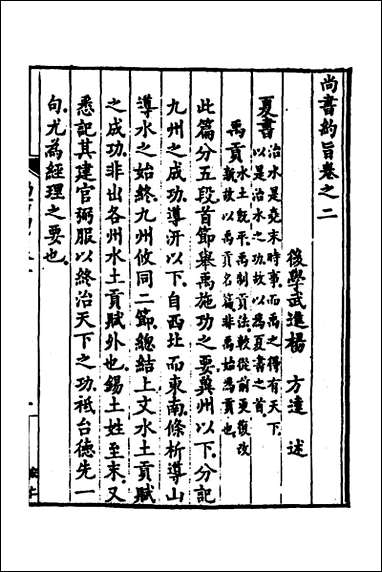 尚書約旨卷之二
後學武進楊　方達　述
夏書
治水是堯末時事而禹之得有天下
以是治水之功故以爲夏書之首
禹貢
水土旣平禹制貢法較從前更復改
新故以禹貢名篇非禹始爲貢也
此篇分五段首節舉禹施功之要冀州以下分記
九州之成功導汧以下自西北而東南條析導山
導水之始終九州攸同二節總結上文水土貢賦
之成功非出各州水土貢賦外也錫土姓至末又
悉記其建官弼服以終治天下之功祗台德先一
句尤爲經理之要也